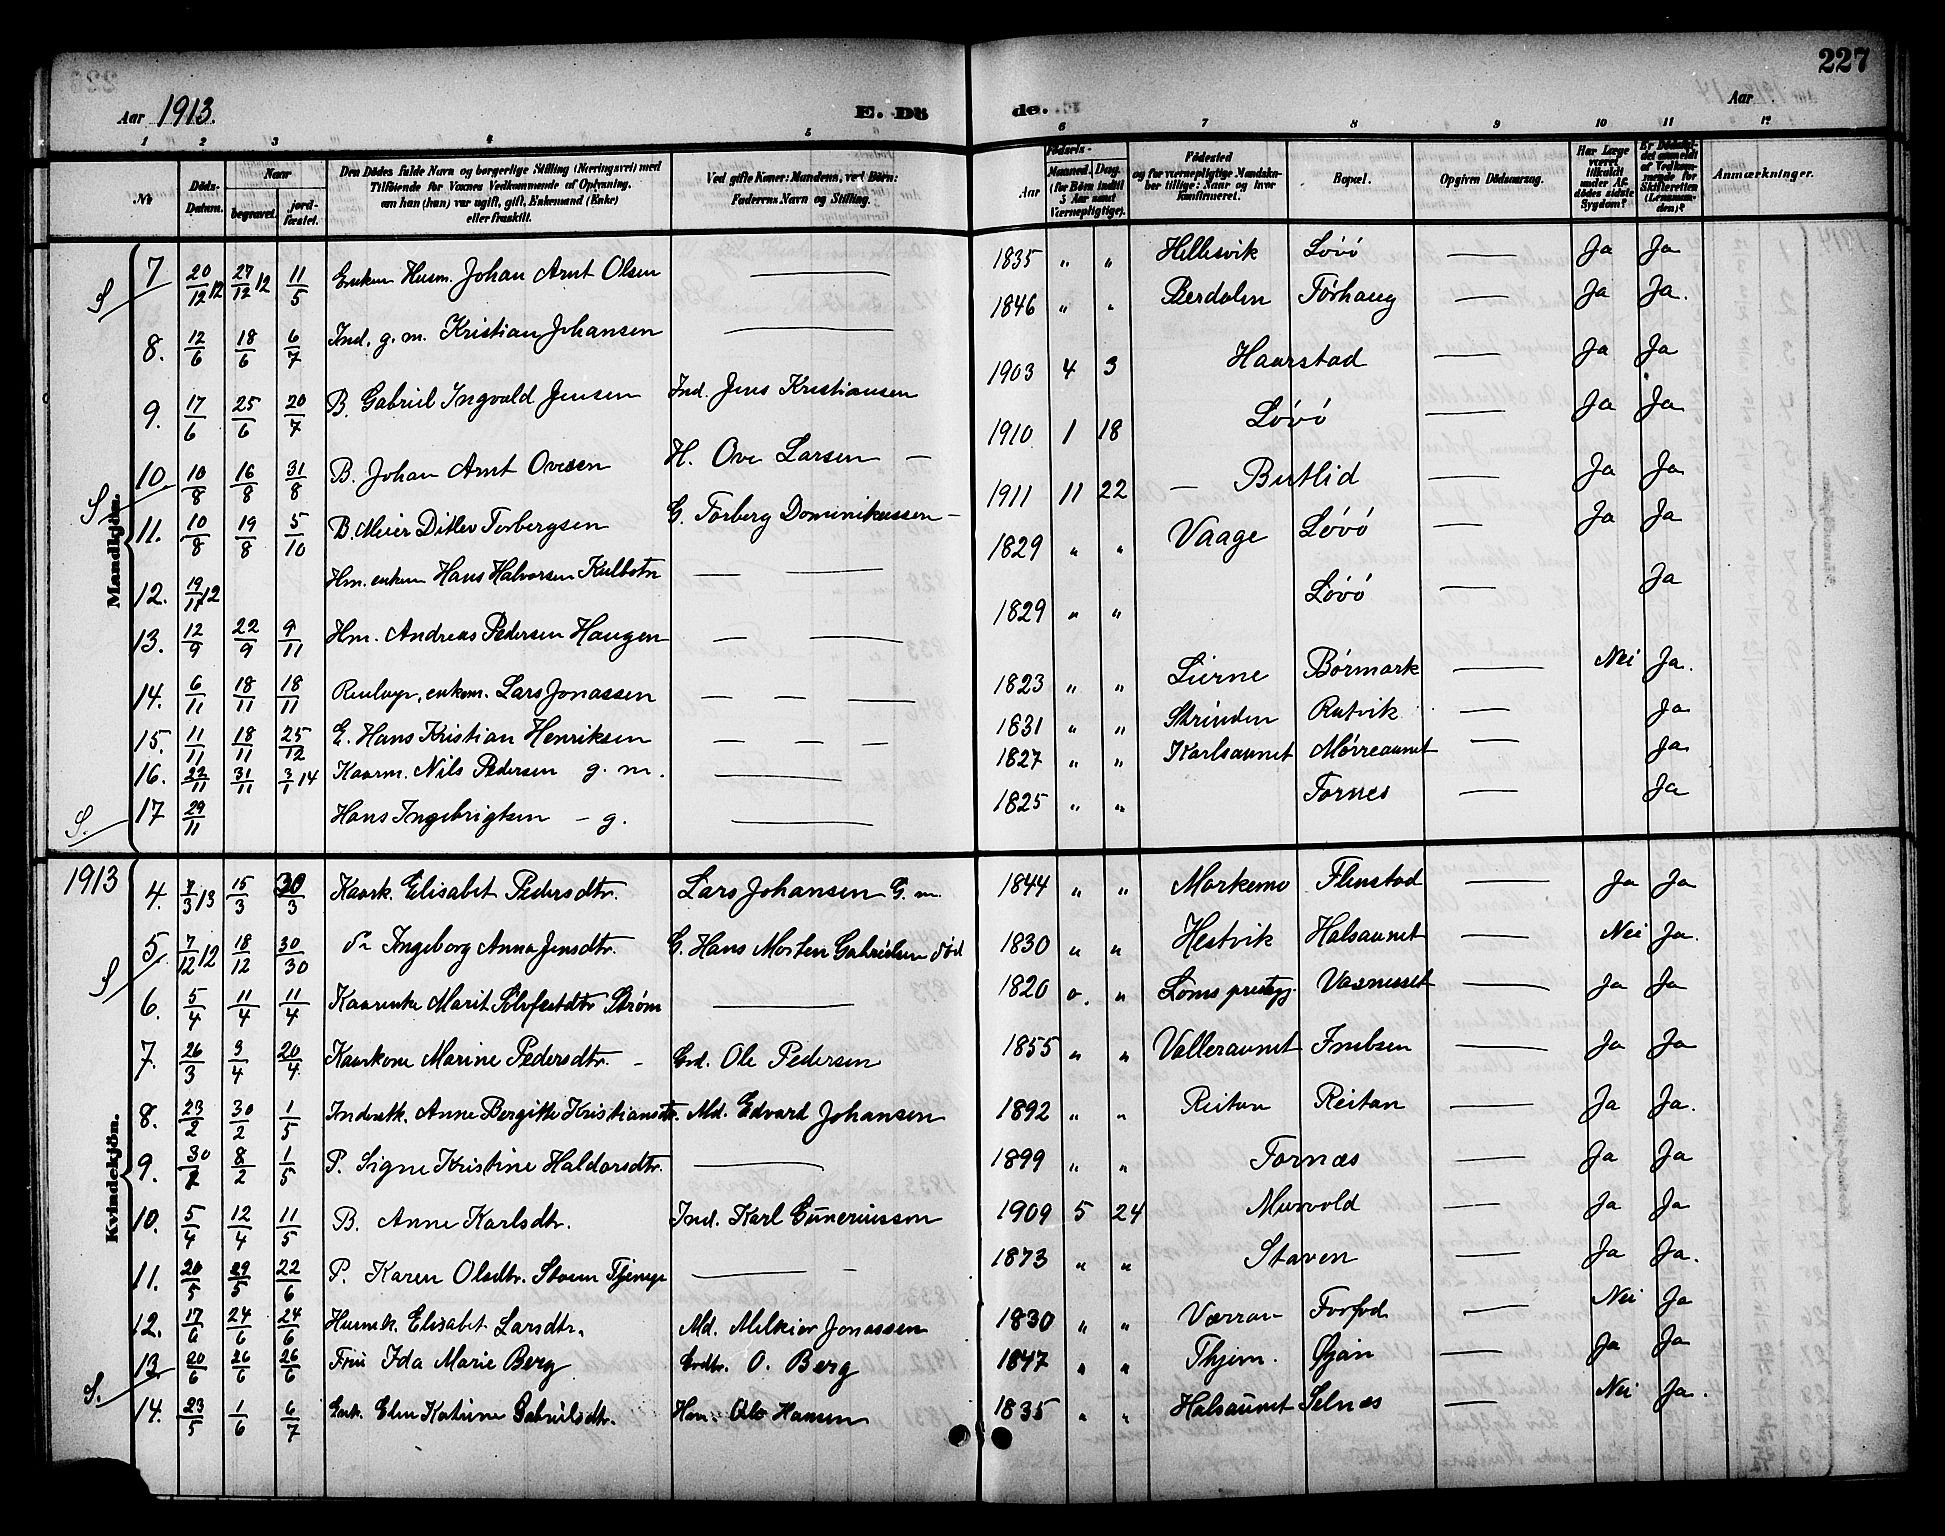 227
Aar 1913. E. Dö de. Aar
1 2 3 4 5 6 7 8 9 10 11 12
№ Döds-Datum. Naar begravet. jord-fæstet. Den Dödes fulde Navn og borgerlige Stilling (Næringsvei) med Tilföiende for Voxnes Vedkommende af Oplysning, om han (hun) var ugift, gift, Enkemand (Enke) eller fraskilt. Ved gifte Koner: Mandens, ved Börn: Faderens Navn og Stilling. Födsels- Aar Maaned. Dag. (for Börn indtil 5 Aar samt Værnepligtige). Födested og for værnepligtige Mandskaber tillige: Naar og hvor konfirmeret. Bopæl. Opgiven Dödsaarsag. Har Læge været tilkaldt under Afdödes sidste Sygdom? Er Dödsfaldet anmeldt af Vedkommende for Skifteretten (Lensmanden)? Anmærkninger.
Mandkjön.
S 7 20/12 12 27/12 12 11/5 Enkem Husm. Johan Arnt Olsen — 1835 " " Hellesvik Løvø — Ja Ja
8. 12/6 18/6 6/7 Ind. g. m. Kristian Johansen — 1846 " " Berdalen Tørhaug — Ja Ja.
9. 17/6 25/6 20/7 B. Gabriel Ingvald Jensen Ind. Jens Kristiansen 1903 4 3 Haarstad — Ja Ja
10. 10/8 16/8 31/8 B. Johan Arnt Ovesen H. Ove Larsen — 1910 1 18 Løvø — Ja Ja
S 11. 10/8 19/8 5/10 B. Meier Ditlev Torbergsen G. Torberg Dominikussen — 1911 11 22 — Butlid — Ja Ja
12. 19/11 12 Hm. enkem Hans Halvorsen Kulbotn — — 1829 " " Vaage Løvø — Ja Ja
13. 12/9 22/9 9/11 Hm. Andreas Pedersen Haugen — — 1829 " " Løvø — Ja
14. 6/11 18/11 18/11 enkem. Lars Jonassen — — — 1823 " " Lierne Børmark — Nei Ja.
15. 11/11 18/11 25/12 E. Hans Kristian Henriksen — — — 1831 " " Strinden Rutvik — Ja
16. 22/11 31/11 3/1 14 Kaarm. Nils Pedersen g. m. — 1827 " " Karlsaunet Mørreaunet — Ja
S. 17 29/11 Hans Ingebrigtsen — g. — 1825 " " Fornes — Ja
1913
Kvindekjön.
4. 7/3 13 15/3 30/3 Kaark. Elisabet Pedersdtr. Lars Johansen G. m. 1844 " " Morkemo Flenstad — Ja Ja
5 7/12 12 18/12 30/30 do Ingeborg Anna Jensdtr. G. Hans Morten Gabrielsen død 1830 " " Hestvik Halsaunet — Nei Ja.
S 6. 5/4 11/4 11/4 Kaarenke Marit Sølvfestdtr Strøm — 1820 " " Loms prestegj. Vasnesset — Ja Ja
7. 26/3 3/4 20/4 Kaarkone Marine Pedersdtr. — Grd. Ole Pedersen 1855 " " Valleraunet — Ja Ja
8. 23/2 30/2 1/5 Anne Bergitte Kristiansdtr. Md. Edvard Johansen 1892 " " Reitan Reitan — Ja Ja.
9. 30/1 8/2 1/5 P. Signe Kristine Haldorsdtr. — 1899 " " Fornæs — Ja Ja
10. 5/4 12/4 11/5 B. Anne Karlsdtr. Ind. Karl Guneriusson 1909 5 24 Murvold — Ja Ja
11. 20/5 29/5 22/6 P. Karen Olsdtr. Stoen Tjenepi — — 1873 " " Staven — Ja Ja.
12. 17/6 24/6 24/6 Husmk. Elisabet Larsdtr. Md. Melkior Jonassen 1830 " " Værran Forfod — Nei Ja
13. 20/6 26/6 26/6 Frui Ida Marie Berg Grdbr. O. Berg 1847 " " Thjem. Gjøn — Ja Ja
S. 14. 23/5 1/6 6/7 Enk. Elen Katrine Gabrielsdtr. Hm. Ole Hansen 1835 " " Halsaunet Selnæs — Nei Ja.